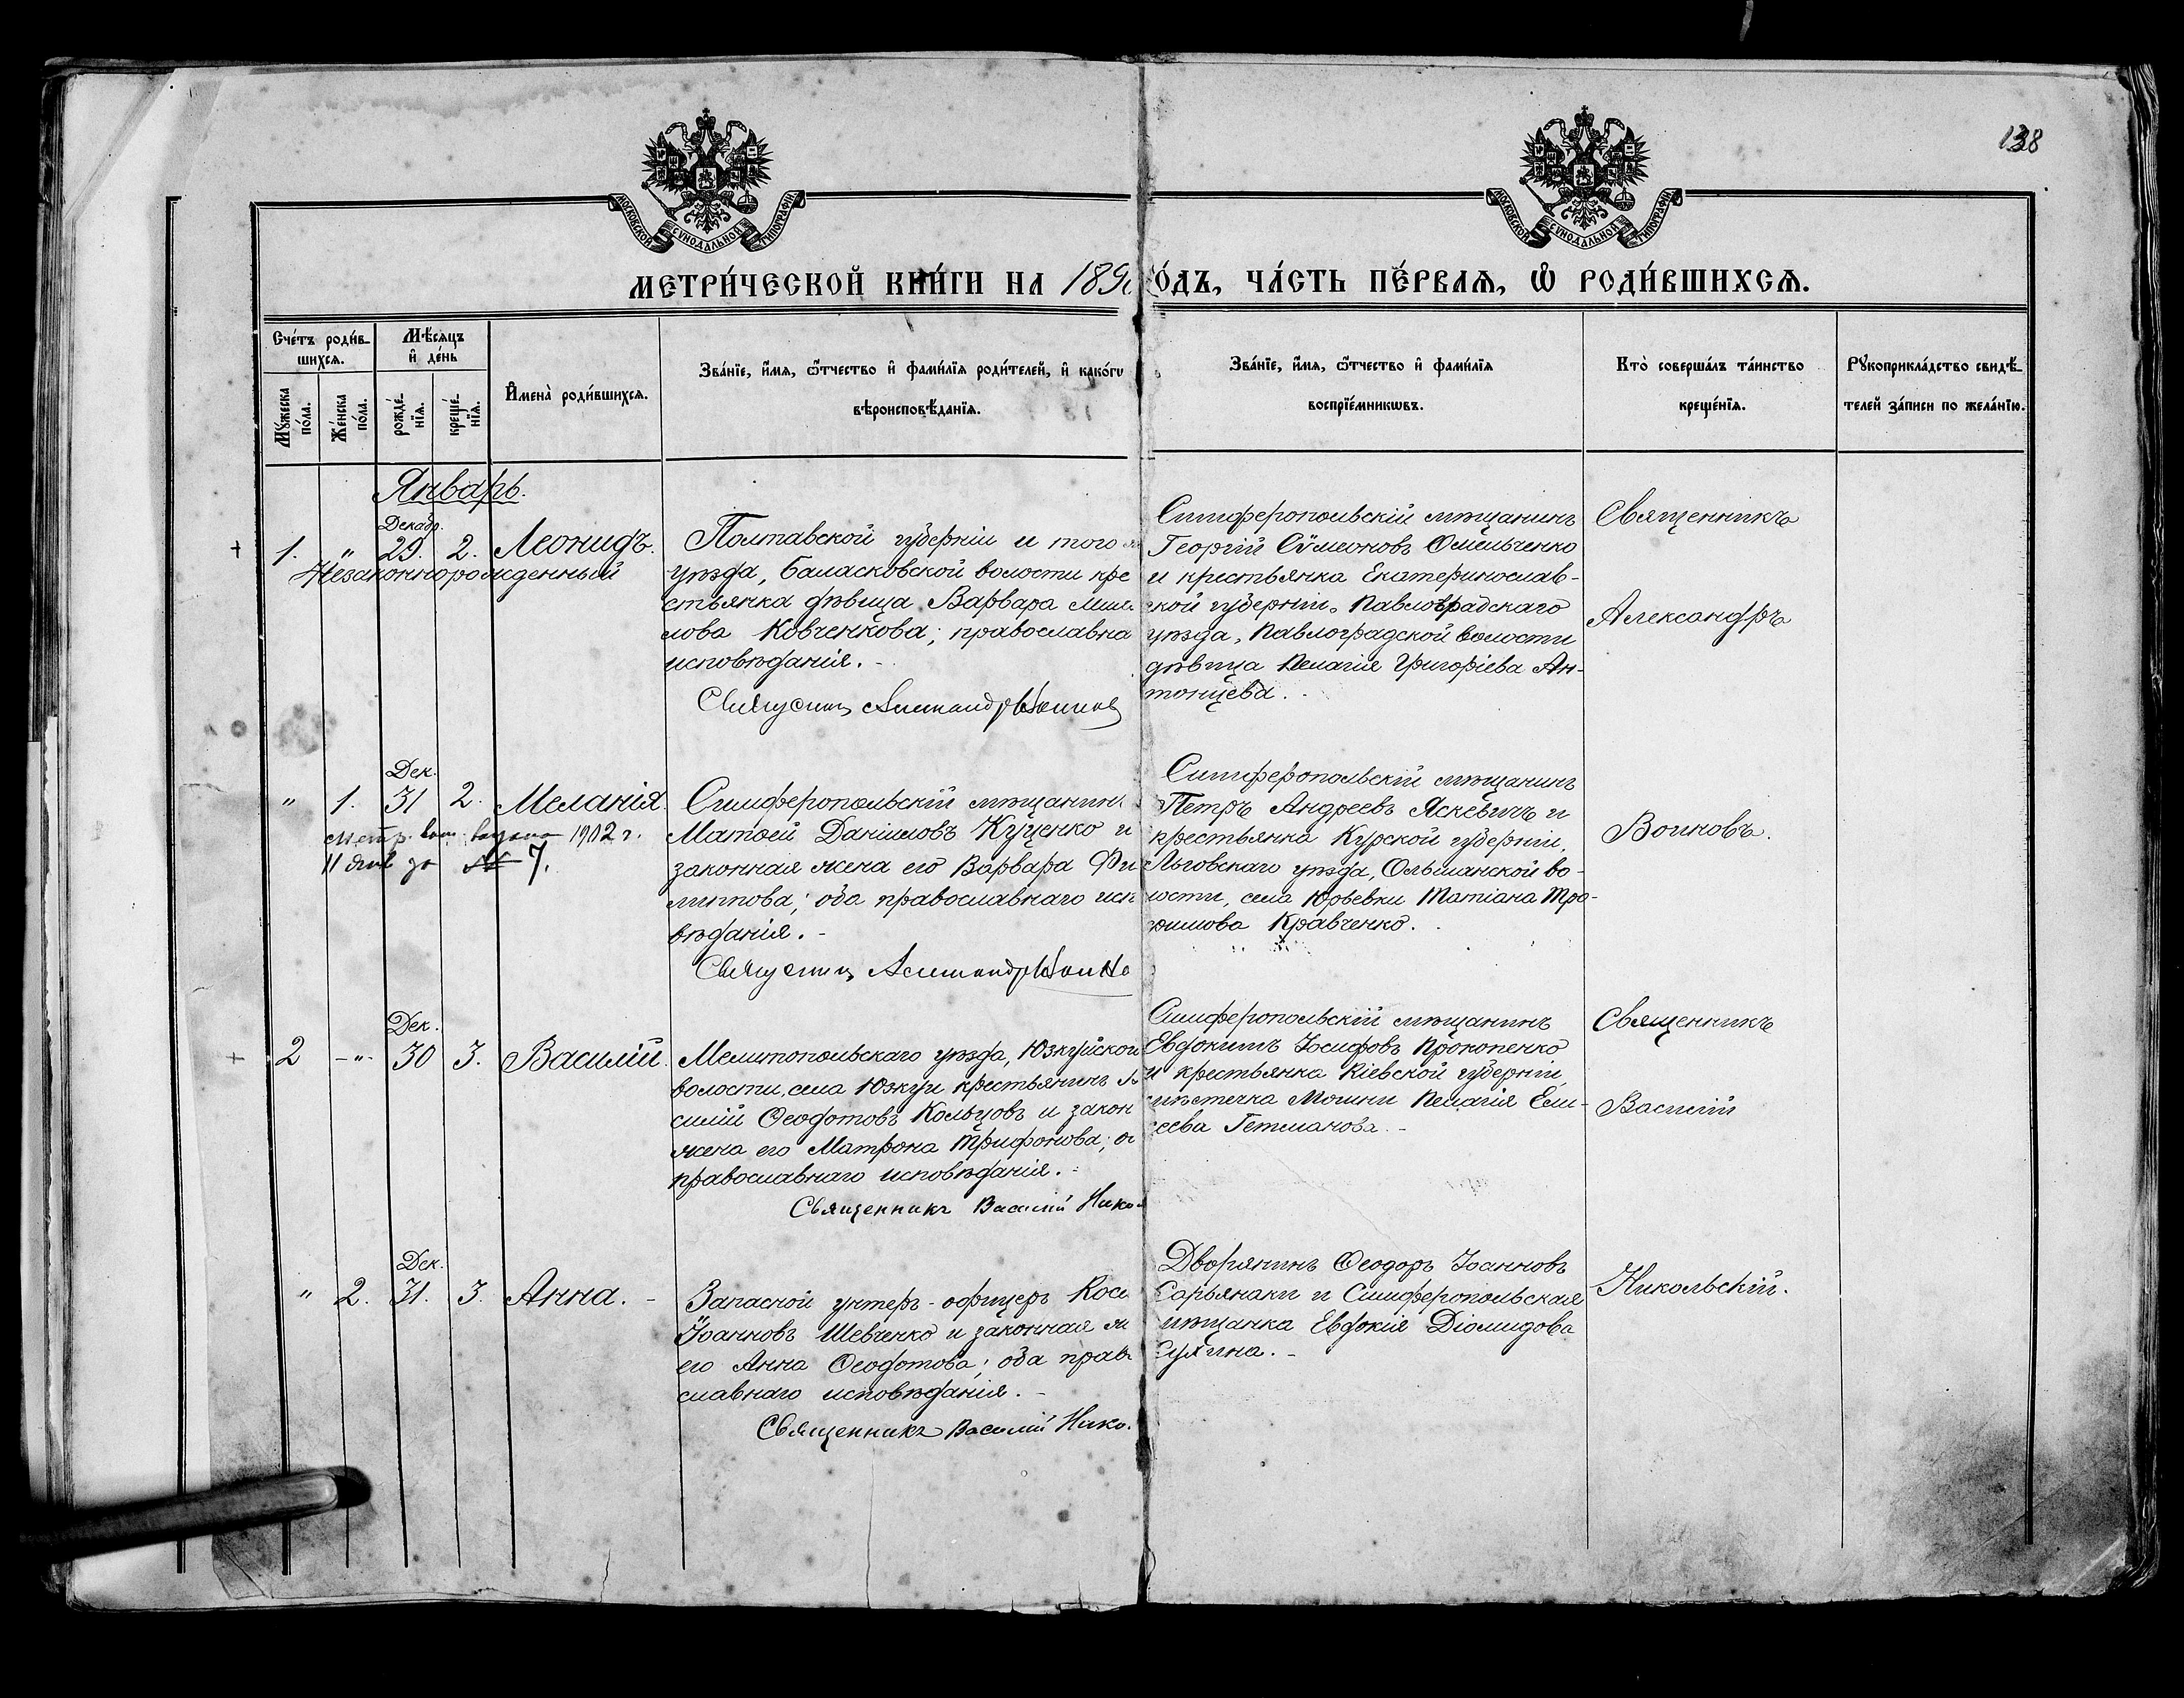 138
МОСКОВСКОЙ СѴНОДАЛЬНОЙ ТИПОГРАФІИ
МОСКОВСКОЙ СѴНОДАЛЬНОЙ ТИПОГРАФІИ
МЕТРИ́ЧЕСКОЙ КНИ́ГИ НА 189
О́ДЪ, ЧА́СТЬ ПЕ́РВАѦ, Ѡ҆ РОДИ́ВШИХСѦ.
Сче́тъ роди́в-
шихсѧ.
Мѣ́сѧцъ
и҆ де́нь
И҆мена̀ роди́вшихсѧ.
Зва́нїе, и҆́мѧ, ѻ҆́тчество и҆ фами́лїѧ роди́телей, и҆ како́гѡ
вѣроисповѣ́данїѧ.
Зва́нїе, и҆́мѧ, ѻ҆́тчество и҆ фами́лїѧ
воспрїе́мникѡвъ.
Кто̀ соверша́лъ та́инство
креще́нїѧ.
Рꙋкоприкла́дство свидѣ́-
телей за́писи по жела́нїю.
Мꙋ́жеска
по́ла.
Же́нска
по́ла.
рожде́-
нїѧ.
креще́-
нїѧ.
Январь.
Декабр.
1. " 29. 2. Леонидъ.
Незаконнорожденный
Полтавской губерніи и того
уѣзда, Баласковской волости кре
стьянка дѣвица Варвара
лова Ковченкова; православна
исповѣданія. -
Священникъ Александръ Воиновъ
Симферопольскій мѣщанинъ
Георгій Сѵмеоновъ Омельченко
и крестьянка Екатеринослав-
ской губерніи, Павлоградскаго
уѣзда, Павлоградской волости
дѣвица Пелагія Григоріева Ан-
тонцева.
Священникъ
Александръ
Дек.
" 1. 31 2. Меланія.
1902 г.
11 7.
Симферопольскій мѣщанинъ
Матѳей Даніиловъ Куценко и
законная жена его Варвара Фи
липпова; оба православнаго исп
вѣданія. -
Священникъ Александръ Воино
Симферопольскій мѣщанинъ
Петръ Андреевъ Яскевичъ и
крестьянка Курской губерніи,
Льговскаго уѣзда, Ольшанской во-
лости, села Юрьевки Татіана Тро-
фимова Кравченко.
Воиновъ.
Дек.
2 -"- 30 3. Василій.
Мелитопольскаго уѣзда, Юзкуйской
волости, села Юзкуи крестьянинъ
силій Ѳеодотовъ Кольцовъ и закон
жена его Матрона Трифонова; о
православнаго исповѣданія. -
Священникъ Василій Нико
Симферопольскій мѣщанинъ
Евдокимъ Іосифовъ Прокопенко
и крестьянка Кіевской губерніи,
мѣстечка Мошни Пелагія Ели-
сеева Гетманова. -
Священникъ
Василій
Дек.
" 2. 31. 3. Анна. -
Запасной унтеръ-офицеръ Косм
Іоанновъ Шевченко и законная ж
его Анна Ѳеодотова; оба прав
славнаго исповѣданія. -
Священникъ Василій Нико.
Дворянинъ Ѳеодоръ Іоанновъ
Сарьянаки и Симферопольская
мѣщанка Евдокія Діомидова
Сулина. -
Никольскій.